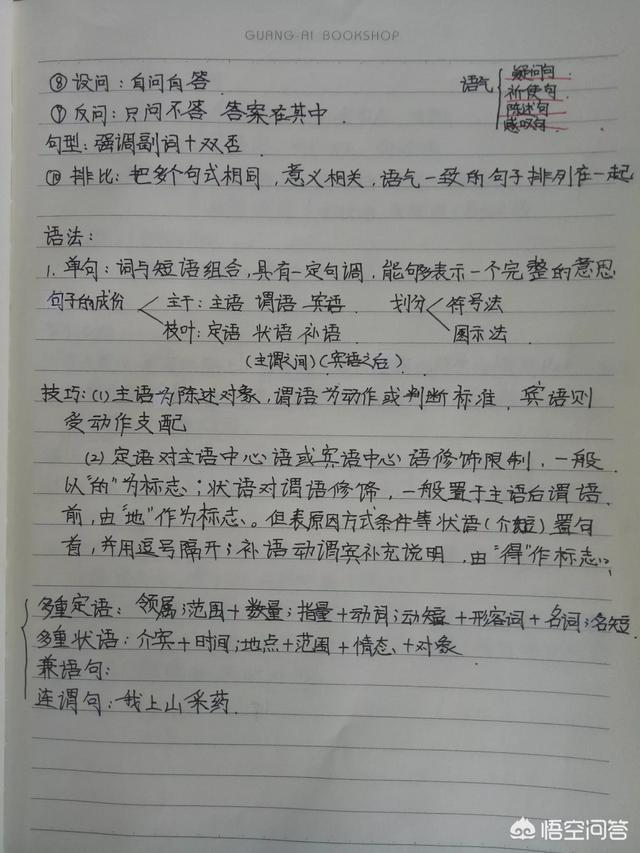 GUANG-AI BOOKSHOP
⑧ 设问：自问自答
语气
疑问句
祈使句
陈述句
感叹句
⑨ 反问：只问不答 答案在其中
句型：强调副词+双否
⑩ 排比：把多个句式相同，意义相关，语气一致的句子排列在一起
语法：
1. 单句：词与短语组合，具有一定句调，能够表示一个完整的意思
句子的成份 主干：主语 谓语 宾语 划分 符号法
枝叶：定语 状语 补语 图示法
(主谓之间)(宾语之后)
技巧：(1) 主语为陈述对象，谓语为动作或判断标准，宾语则
受动作支配
(2) 定语对主语中心语或宾语中心语修饰限制，一般
以“的”为标志；状语对谓语修饰，一般置于主语后谓语
前，由“地”作为标志。但表原因方式条件等状语(介短)置句
首，并用逗号隔开；补语动谓宾补充说明，由“得”作标志
多重定语：领属；范围+数量；指量+动词；动短+形容词+名词；名短
多重状语：介宾+时间；地点+范围+情态+对象
兼语句：
连谓句：我上山采药
悟空问答